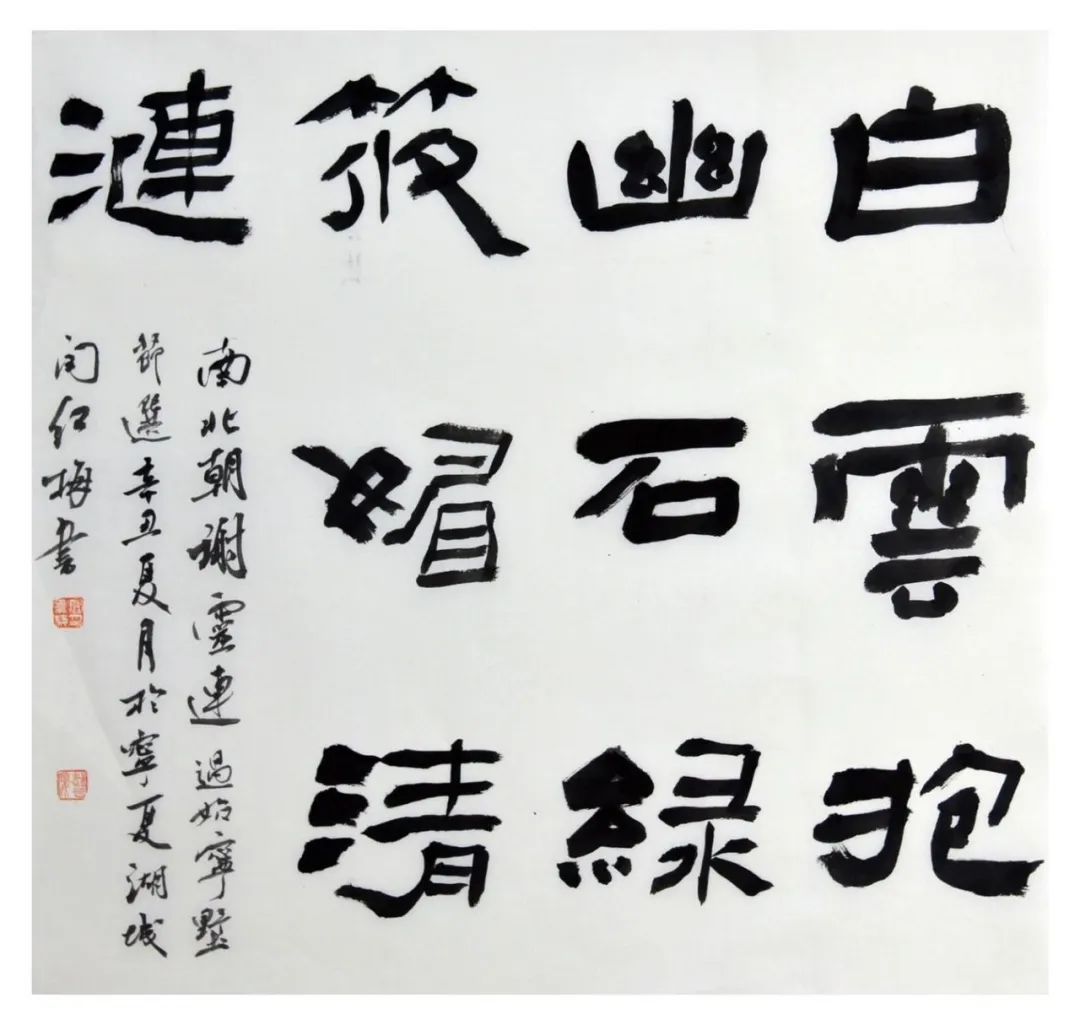 白雲抱
幽石綠
筱媚清
漣
南北朝謝靈連過始寧墅
節選辛丑夏月於寧夏湖城
闫红梅書